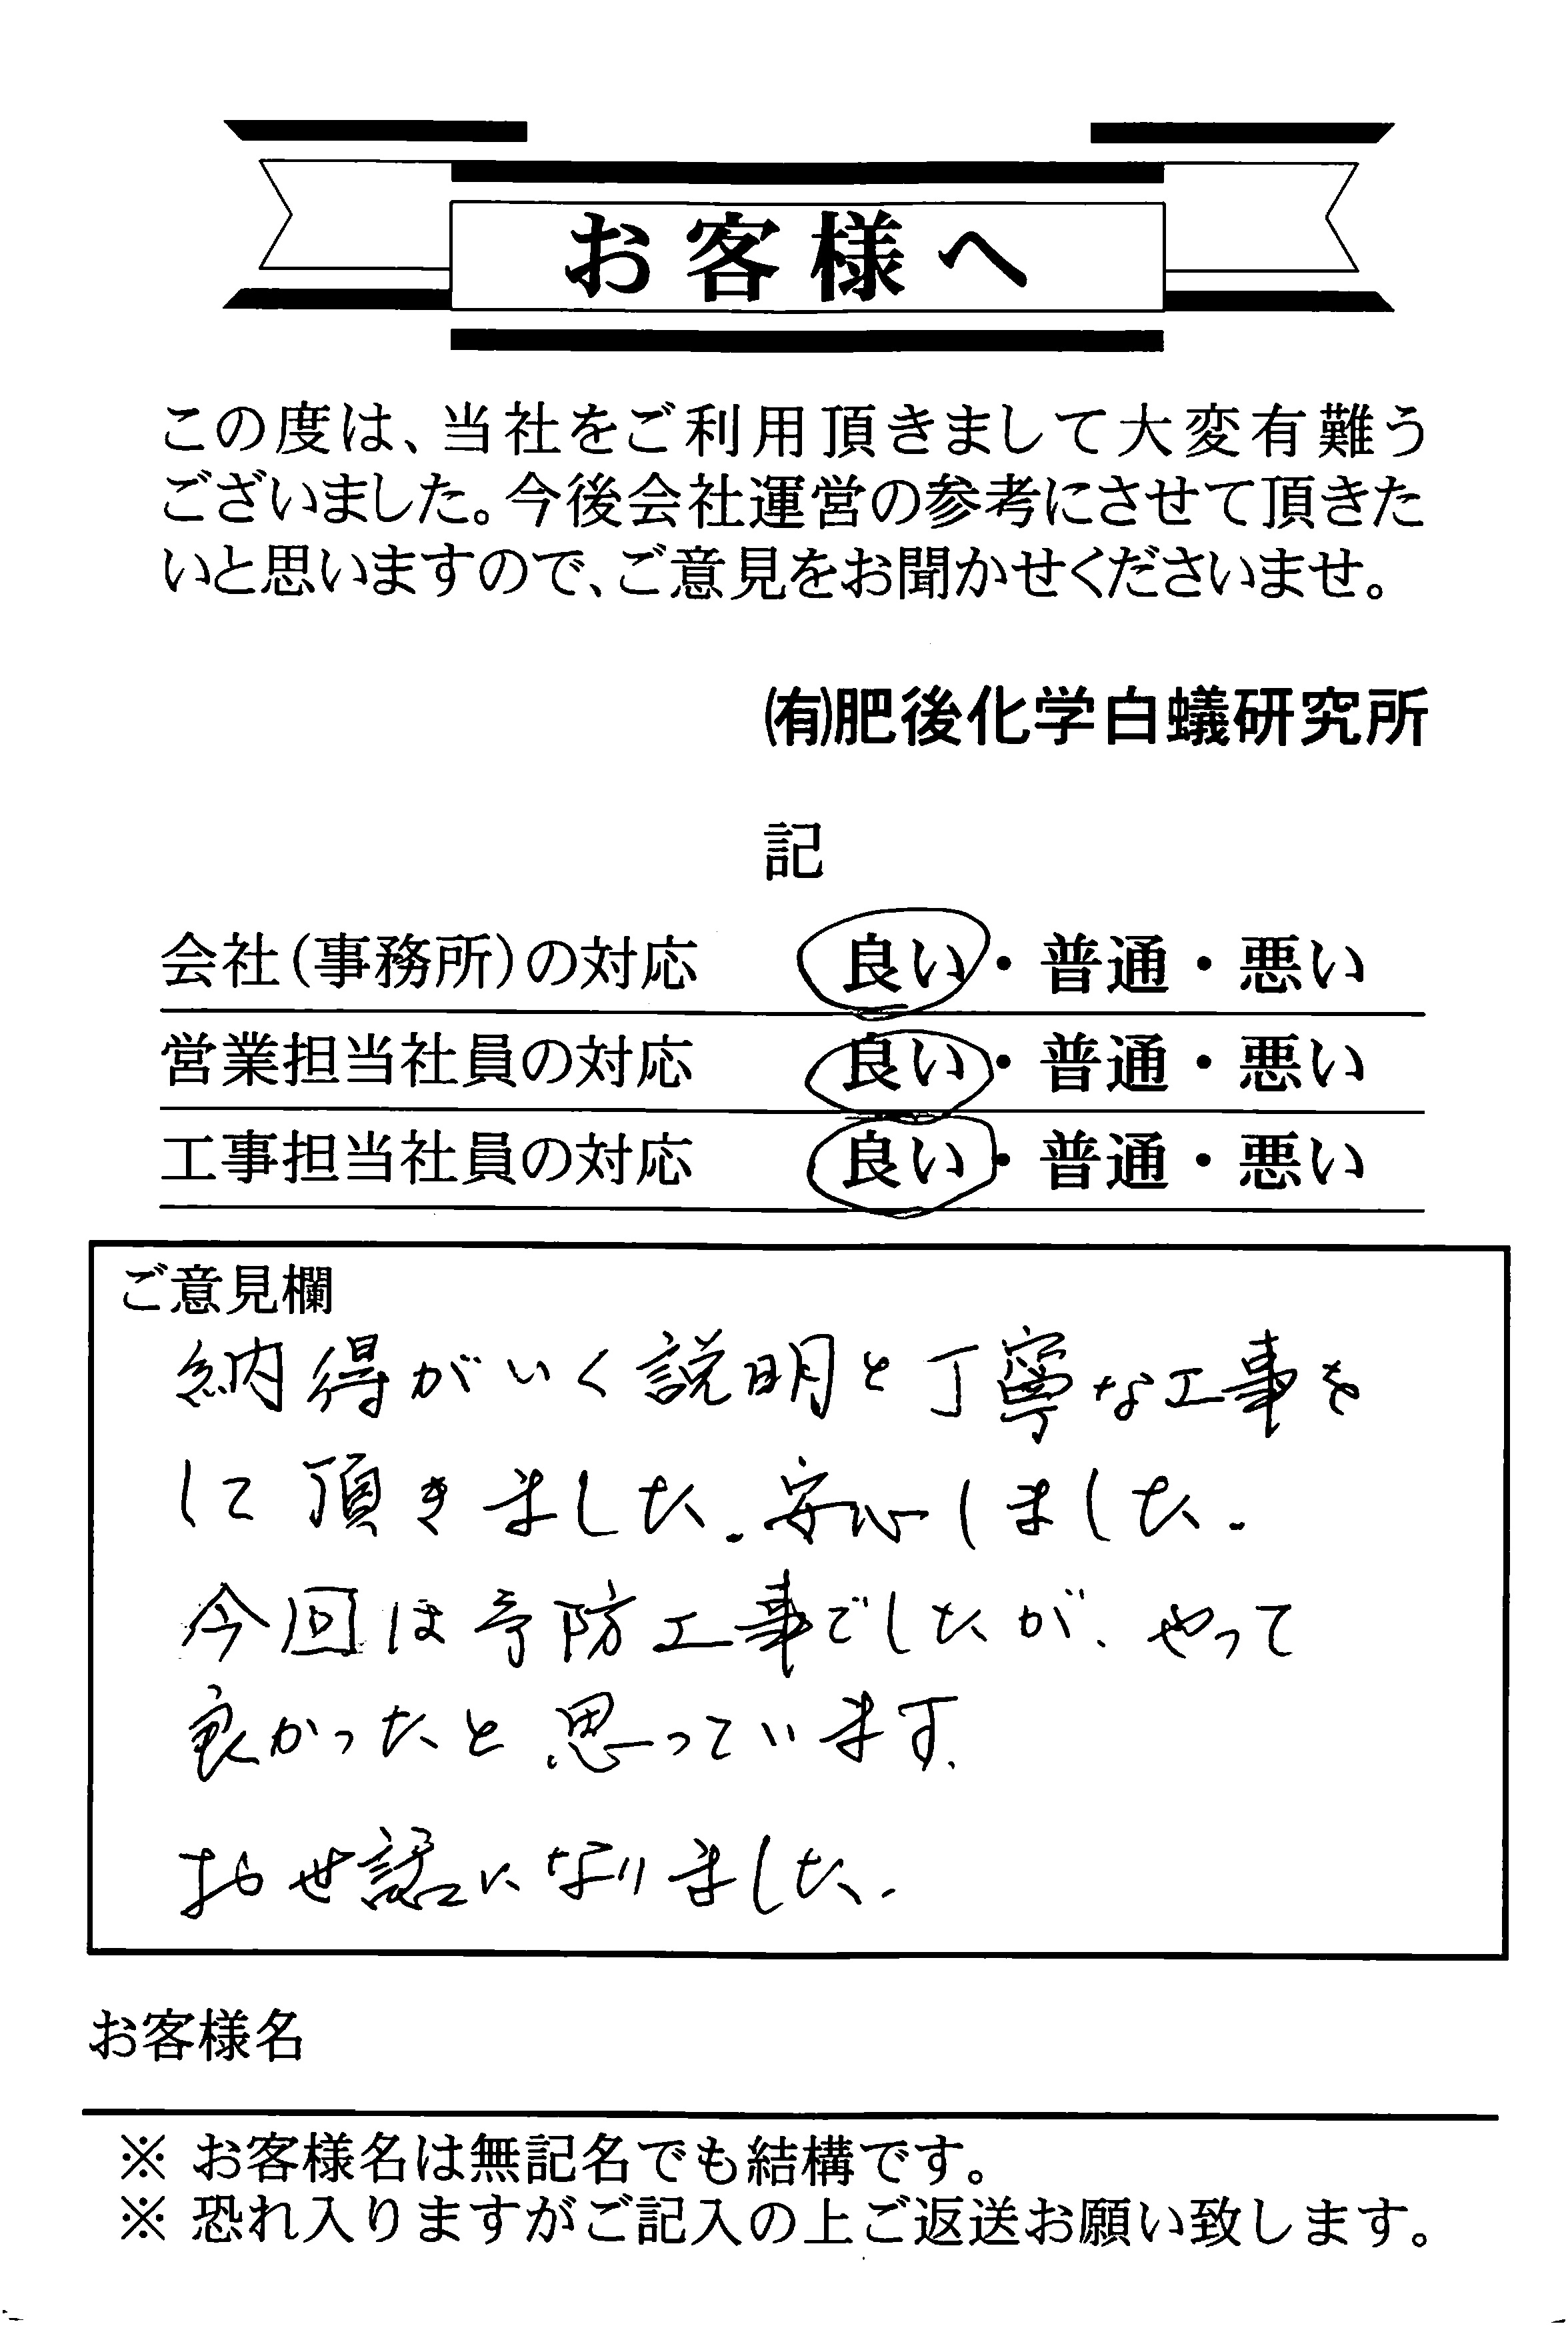 お客様へ
この度は、当社をご利用頂きまして大変有難う
ございました。今後会社運営の参考にさせて頂きた
いと思いますので、ご意見をお聞かせくださいませ。
㈲肥後化学白蟻研究所
記
会社(事務所)の対応 良い・普通・悪い
営業担当社員の対応 良い・普通・悪い
工事担当社員の対応 良い・普通・悪い
ご意見欄
納得がいく説明と丁寧な工事を
して頂きました。安心しました。
今回は予防工事でしたが、やって
良かったと思っています。
お世話になりました。
お客様名
※ お客様名は無記名でも結構です。
※ 恐れ入りますがご記入の上ご返送お願い致します。